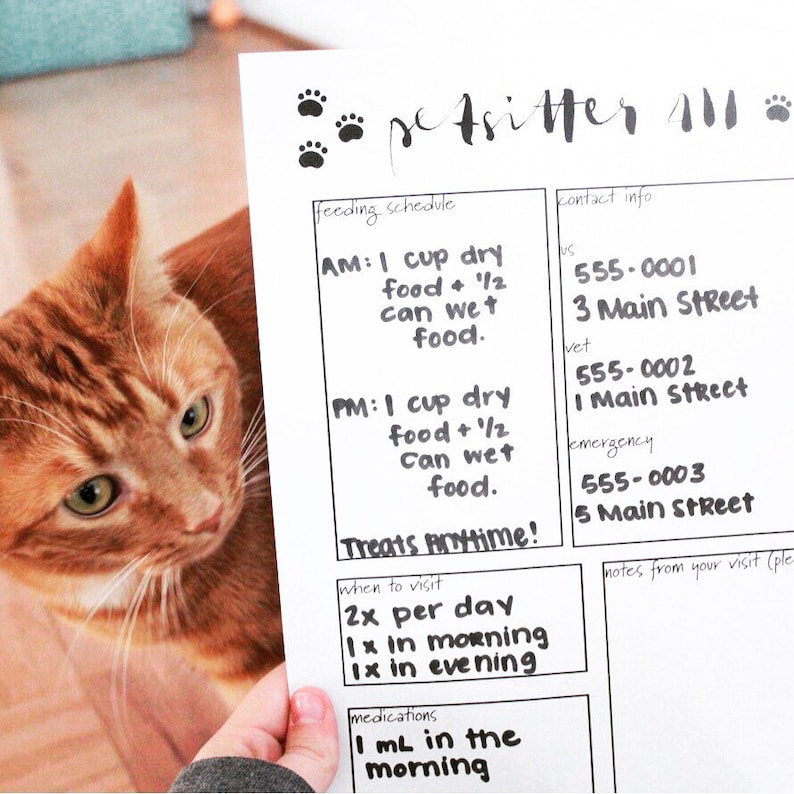 petsitter All
feeding schedule
AM: 1 cup dry
food + 1/2
can wet
food.
PM: 1 cup dry
food + 1/2
can wet
food.
Treats Anytime!
contact info
us
555-0001
3 Main Street
vet
555-0002
1 Main Street
emergency
555-0003
5 Main Street
when to visit
2x per day
1x in morning
1x in evening
notes from your visit (ple
medications
1 mL in the
morning